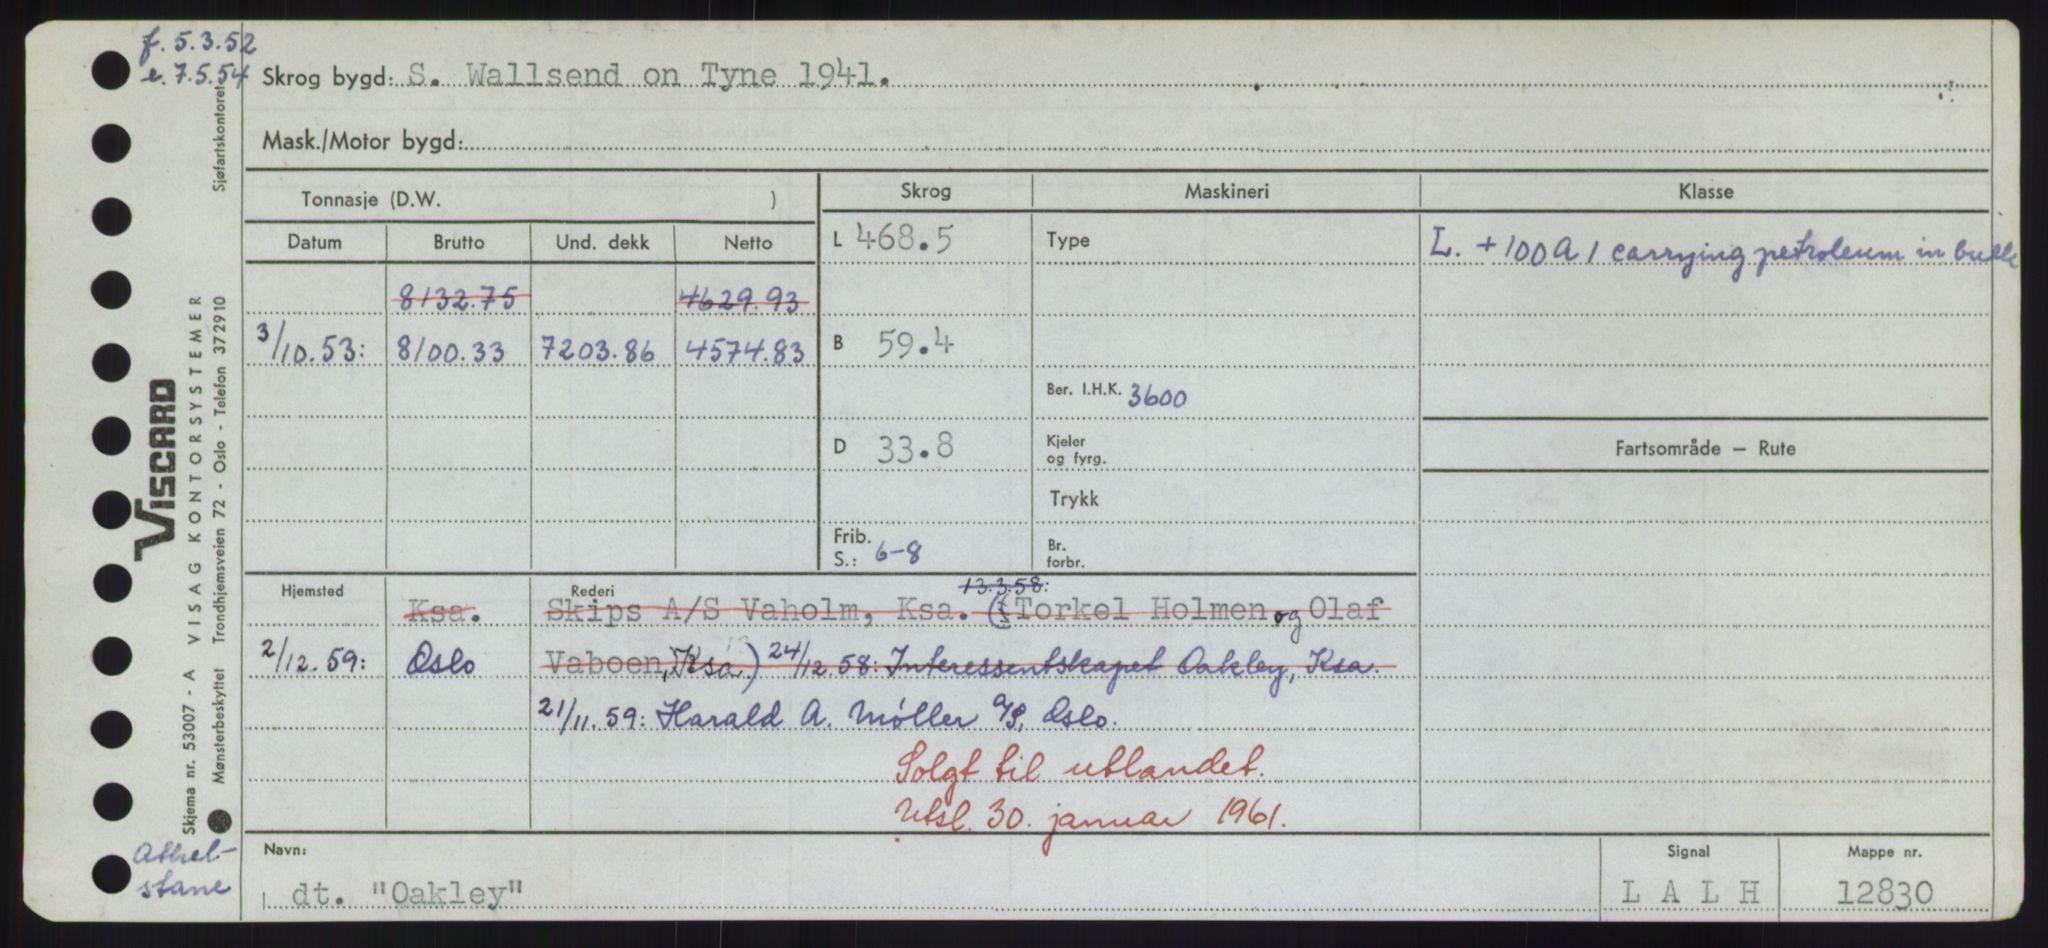 f. 5.3.52
e. 7.5.54
Skrog bygd: S. Wallsend on Tyne 1941.
Mask./Motor bygd:
Tonnasje (D.W. )
Skrog
Maskineri
Klasse
Datum
Brutto
Und. dekk
Netto
L 468.5
Type
L. + 100 A 1 carrying petroleum in bulk
8132.75
4629.93
3/10.53:
8100.33
7203.86
4574.83
B 59.4
Ber. I.H.K. 3600
D 33.8
Kjeler
og fyrg.
Fartsområde – Rute
Trykk
Frib.
S.: 6-8
Br.
forbr.
Hjemsted
Rederi
13.3.58:
Ksa.
Skips A/S Vaholm, Ksa. (Torkel Holmen og Olaf
2/12.59:
Oslo
Vaboen, Ksa) 24/12.58: Interessentskapet Oakley, Ksa.
21/11.59: Harald A. Møller A/S, Oslo.
Solgt til utlandet.
Utsl. 30. januar 1961.
Navn:
dt. "Oakley"
Signal
LALH
Mappe nr.
12830
VISCARD
Skjema nr. 53007 - A VISAG KONTORSYSTEMER
Mønsterbeskyttet Trondhjemsveien 72 - Oslo - Telefon 372910 Sjøfartskontoret
Athel-
stane